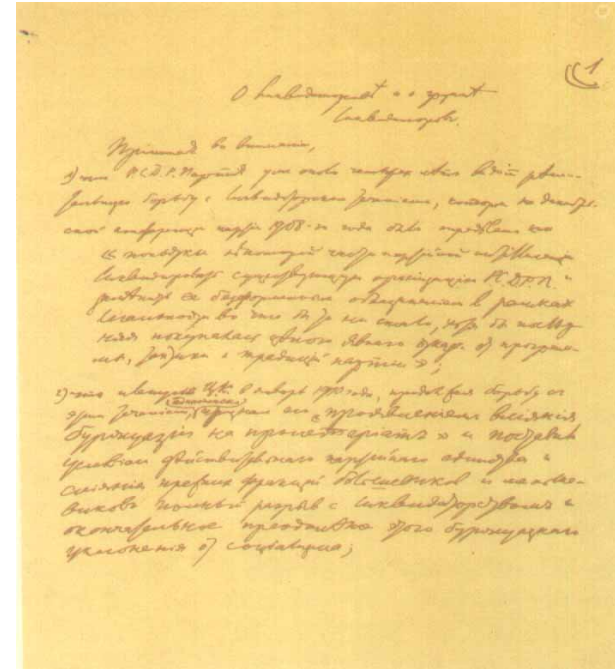 1
О ликвидаторстве и о группе
ликвидаторов.
Принимая во внимание,
1) что Р.С.Д.Р. Партия уже около четырех лет ведет реши-
тельную борьбу с ликвидаторским течением, которое на декабрь-
ской конференции партии 1908-го года было определено как
« попытки некоторой части партийной интеллигенции
ликвидировать существующую организацию Р.С.Д.Р.П. и
заменить ее бесформенным объединением в рамках
легальности во что бы то ни стало, хотя бы послед-
няя покупалась ценою явного отказа от програм-
мы, тактики и традиций партии »;
2) что пленум Ц.К. в январе 1910 года, продолжая борьбу с
этим течением, единогласно признал его « проявлением влияния
буржуазии на пролетариат » и поставил
условием действительного партийного единства и
слияния прежних фракций большевиков и меньше-
виков полный разрыв с ликвидаторством и
окончательное преодоление этого буржуазного
уклонения от социализма;